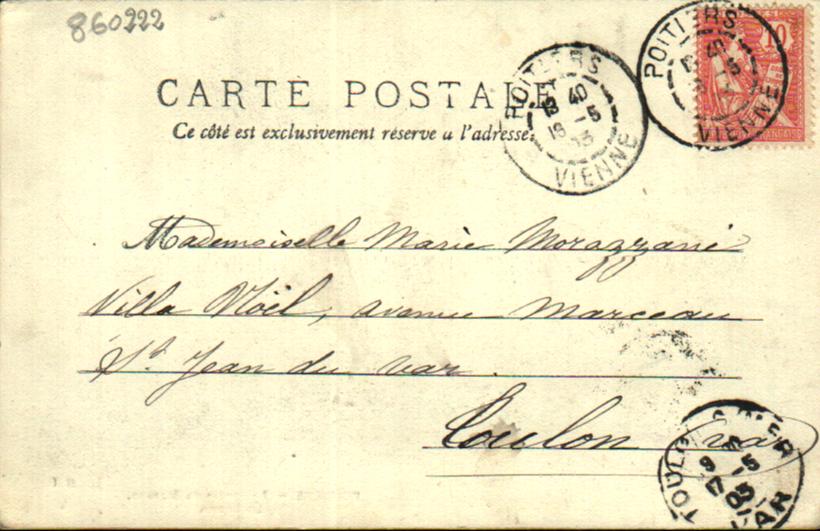 860222
CARTE POSTALE
Ce côté est exclusivement réservé a l'adresse.
POITIERS
VIENNE
POITIERS
VIENNE
10
Mademoiselle Marie Morazzani
Villa Noël, avenue Marceau
St. Jean du Var.
Toulon Var
TOULON
VAR